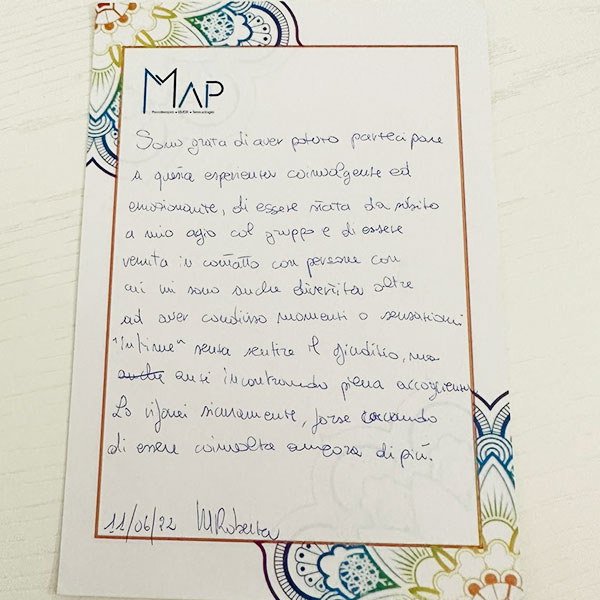 MAP
Psicoterapia • EMDR • Sessuologia
Sono grata di aver potuto partecipare
a questa esperienza coinvolgente ed
emozionante, di essere stata da subito
a mio agio col gruppo e di essere
venuta in contatto con persone con
cui mi sono anche divertita oltre
ad aver condiviso momenti o sensazioni
"intime" senza sentire il giudizio, ma
anche anzi incontrando piena accoglienza.
Lo rifarei sicuramente, forse cercando
di essere coinvolta ancora di più.
11/06/22 MRoberta